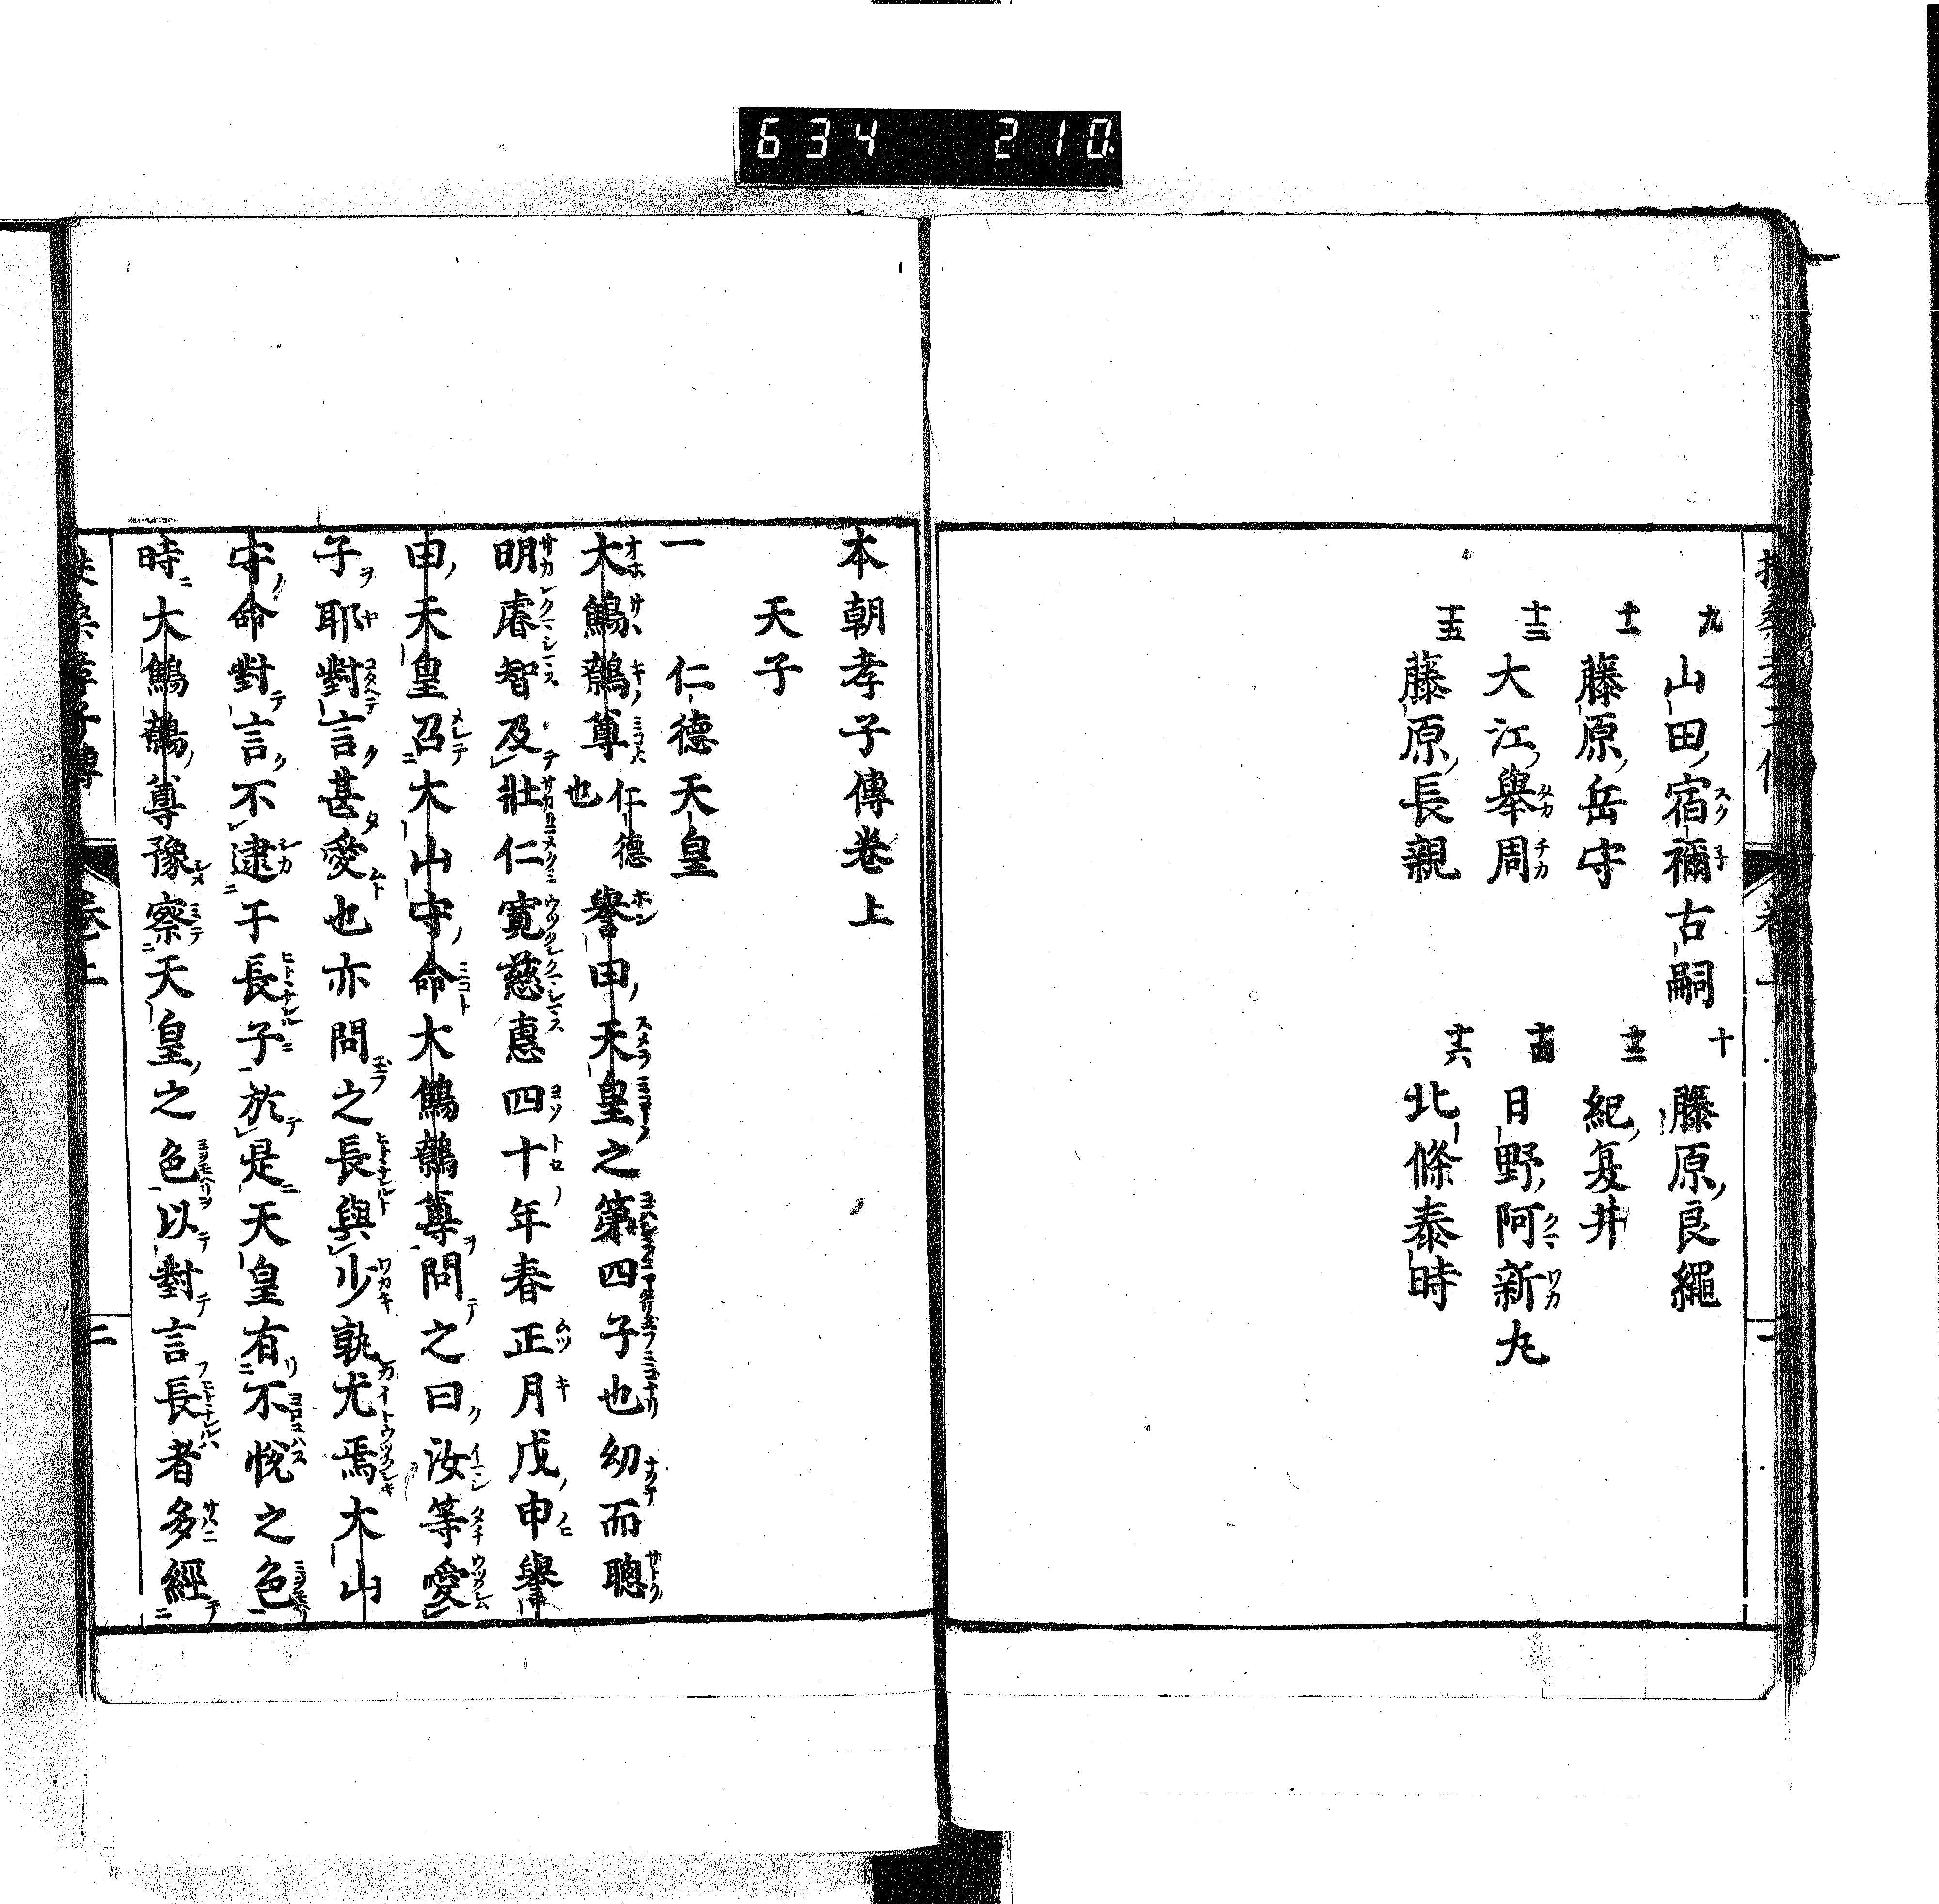 634 210
九 山田宿禰古嗣 十 藤原良繩
十一 藤原岳守 十二 紀夏井
十三 大江舉周 十四 日野阿新丸
十五 藤原長親 十六 北條泰時
本朝孝子傳卷上
天子
一 仁德天皇
大鷦鷯尊仁德也譽田天皇之第四子也幼而聰
明睿智及壯仁寬慈惠四十年春正月戊申譽
田天皇召大山守命大鷦鷯尊問之曰汝等愛
子耶對言甚愛也亦問之長與少孰尤焉大山
守命對言不逮于長子於是天皇有不悅之色
時大鷦鷯尊豫察天皇之色以對言長者多經
扶桑孝子傳 卷上 二